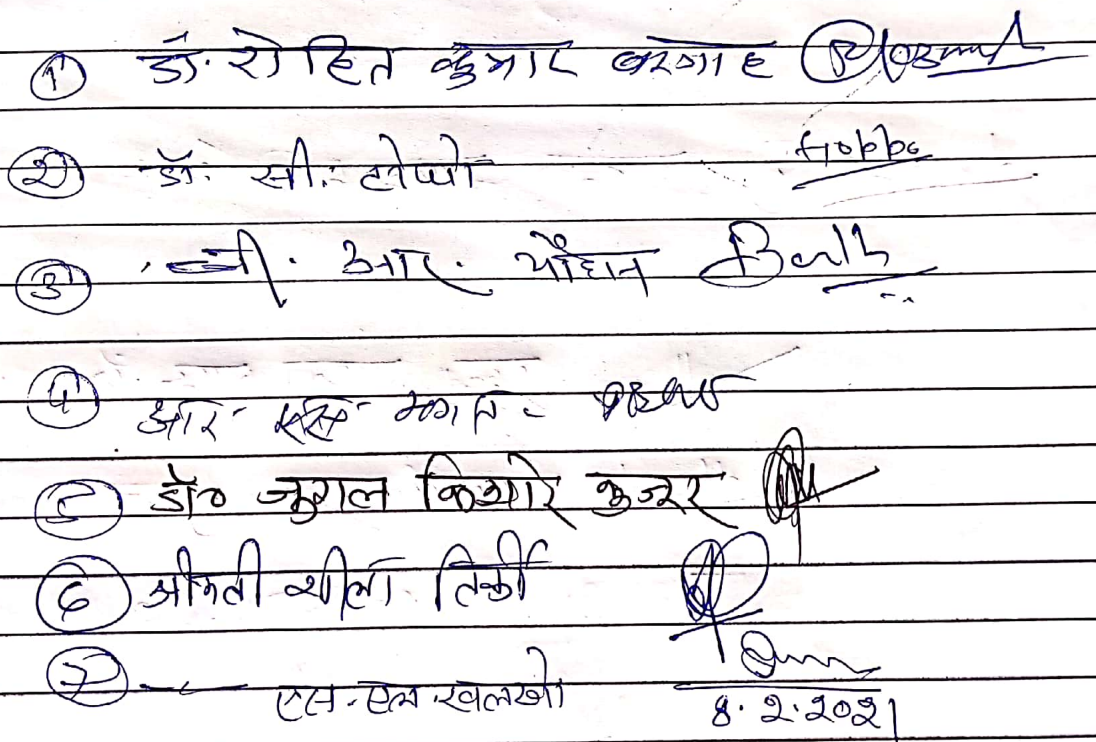 ① डॉ. रोहित कुमार बरगाह
② डॉ. सी. टोप्पो Toppo
③ बी. आर. चौहान
④ आर एस भगत -
५ डॉ० जुगल किशोर कुजूर
६ श्रीमती शीला तिर्की
७ — एस. एल. खलखो
8.2.2021